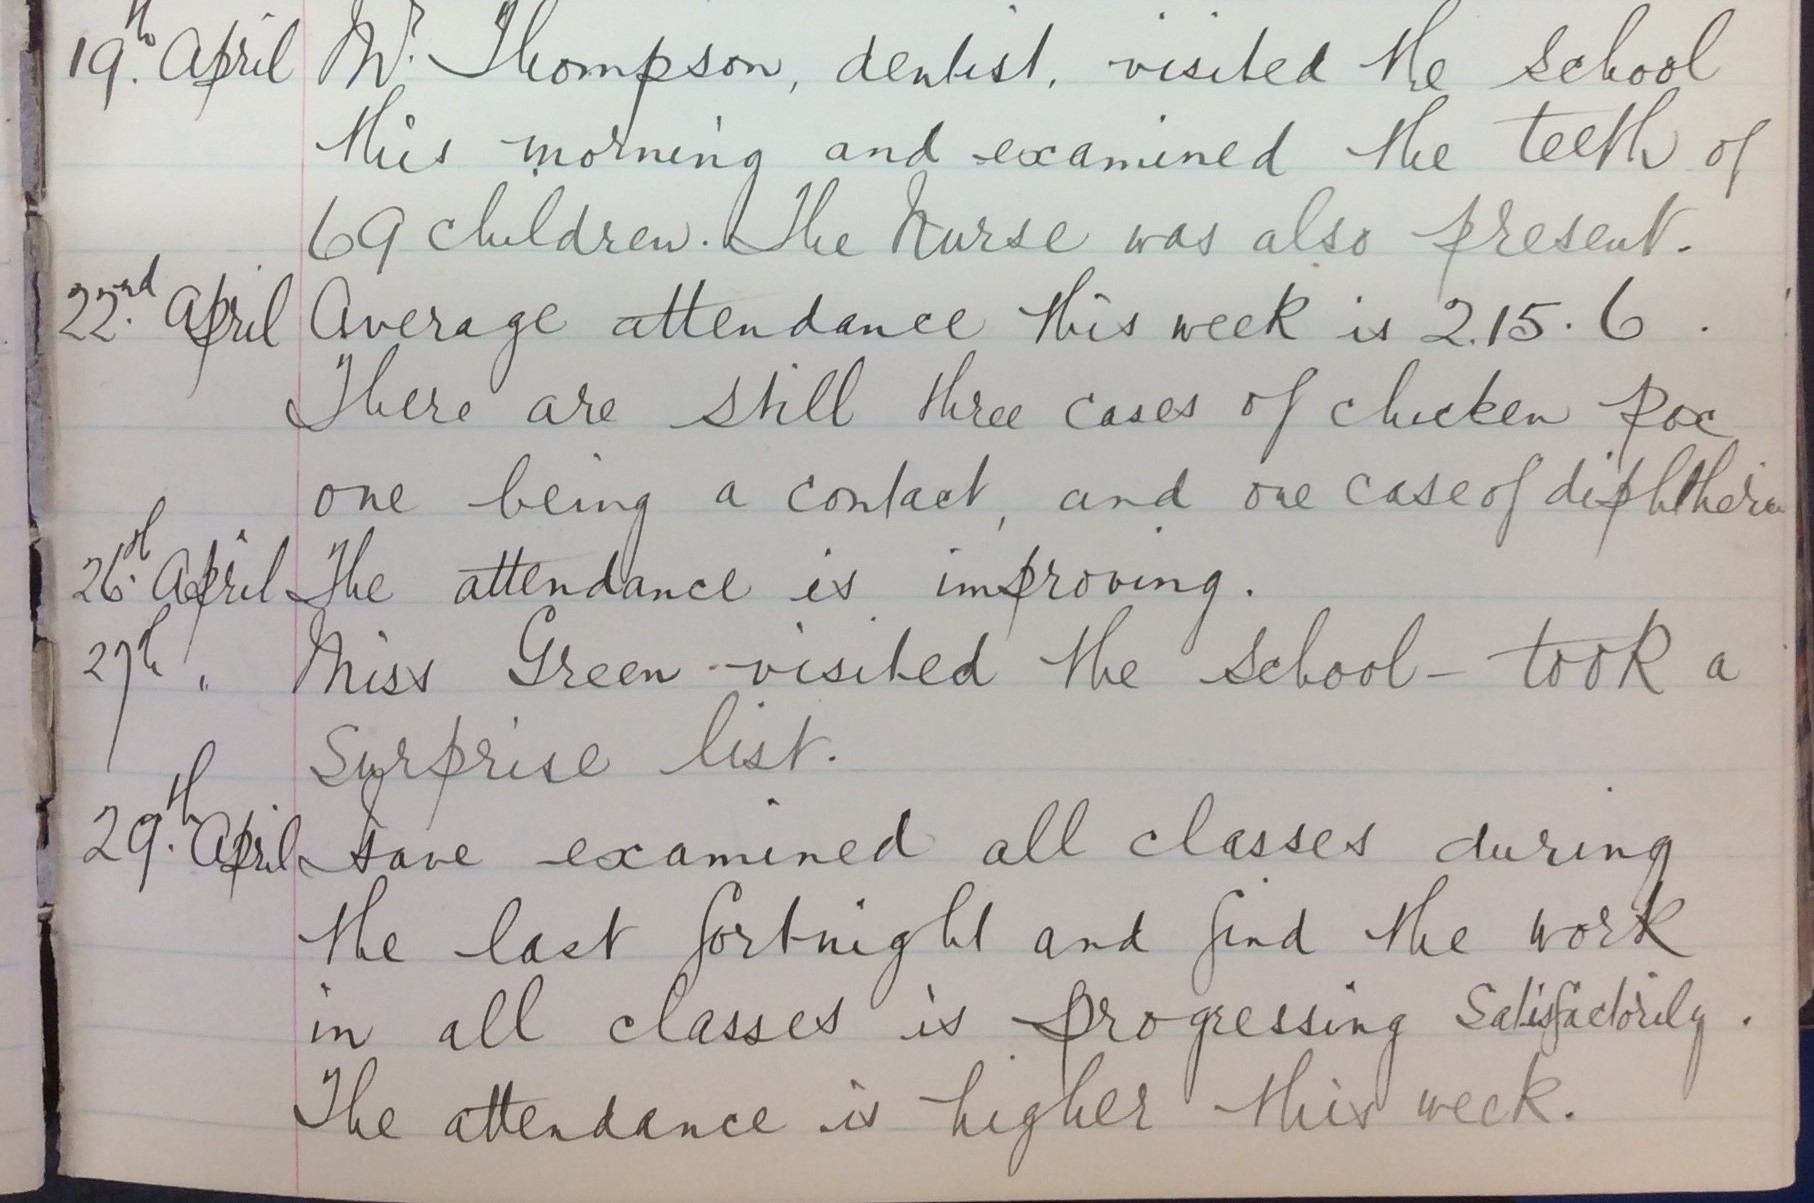 19th April Mr. Thompson, dentist, visited the school
this morning and examined the teeth of
69 children. The Nurse was also present.
22nd April Average attendance this week is 215.6.
There are still three cases of chicken pox
one being a contact, and one case of diphtheria
26th April The attendance is improving.
27th " Miss Green visited the school – took a
Surprise list.
29th April Have examined all classes during
the last fortnight and find the work
in all classes is progressing Satisfactorily.
The attendance is higher this week.